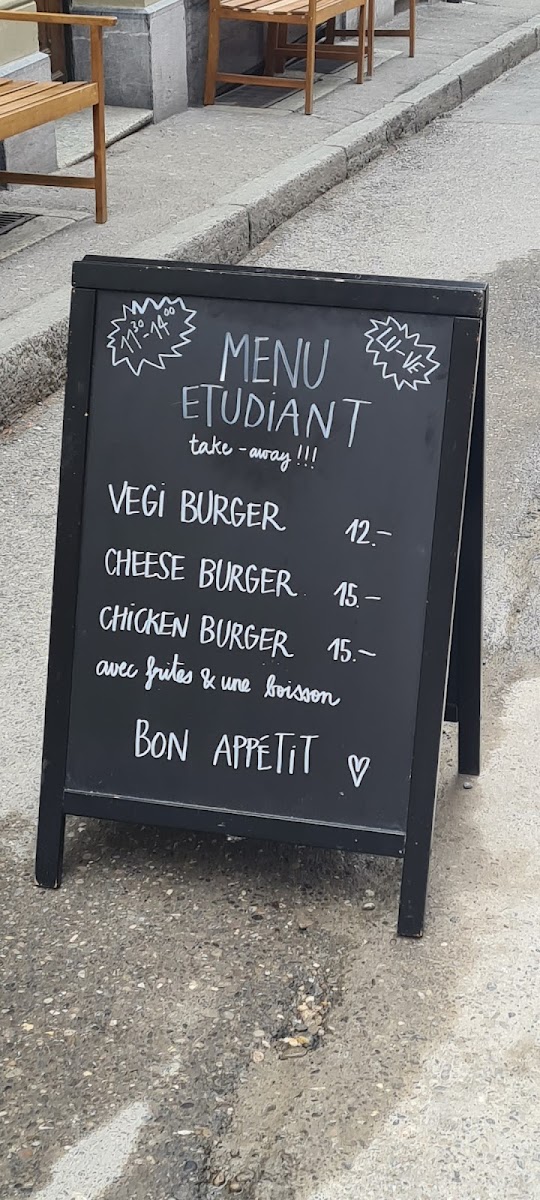 11³⁰-14⁰⁰
LU-VE
MENU
ETUDIANT
take-away!!!
VEGI BURGER 12.–
CHEESE BURGER 15.–
CHICKEN BURGER 15.–
avec frites & une boisson
BON APPÉTIT ♡